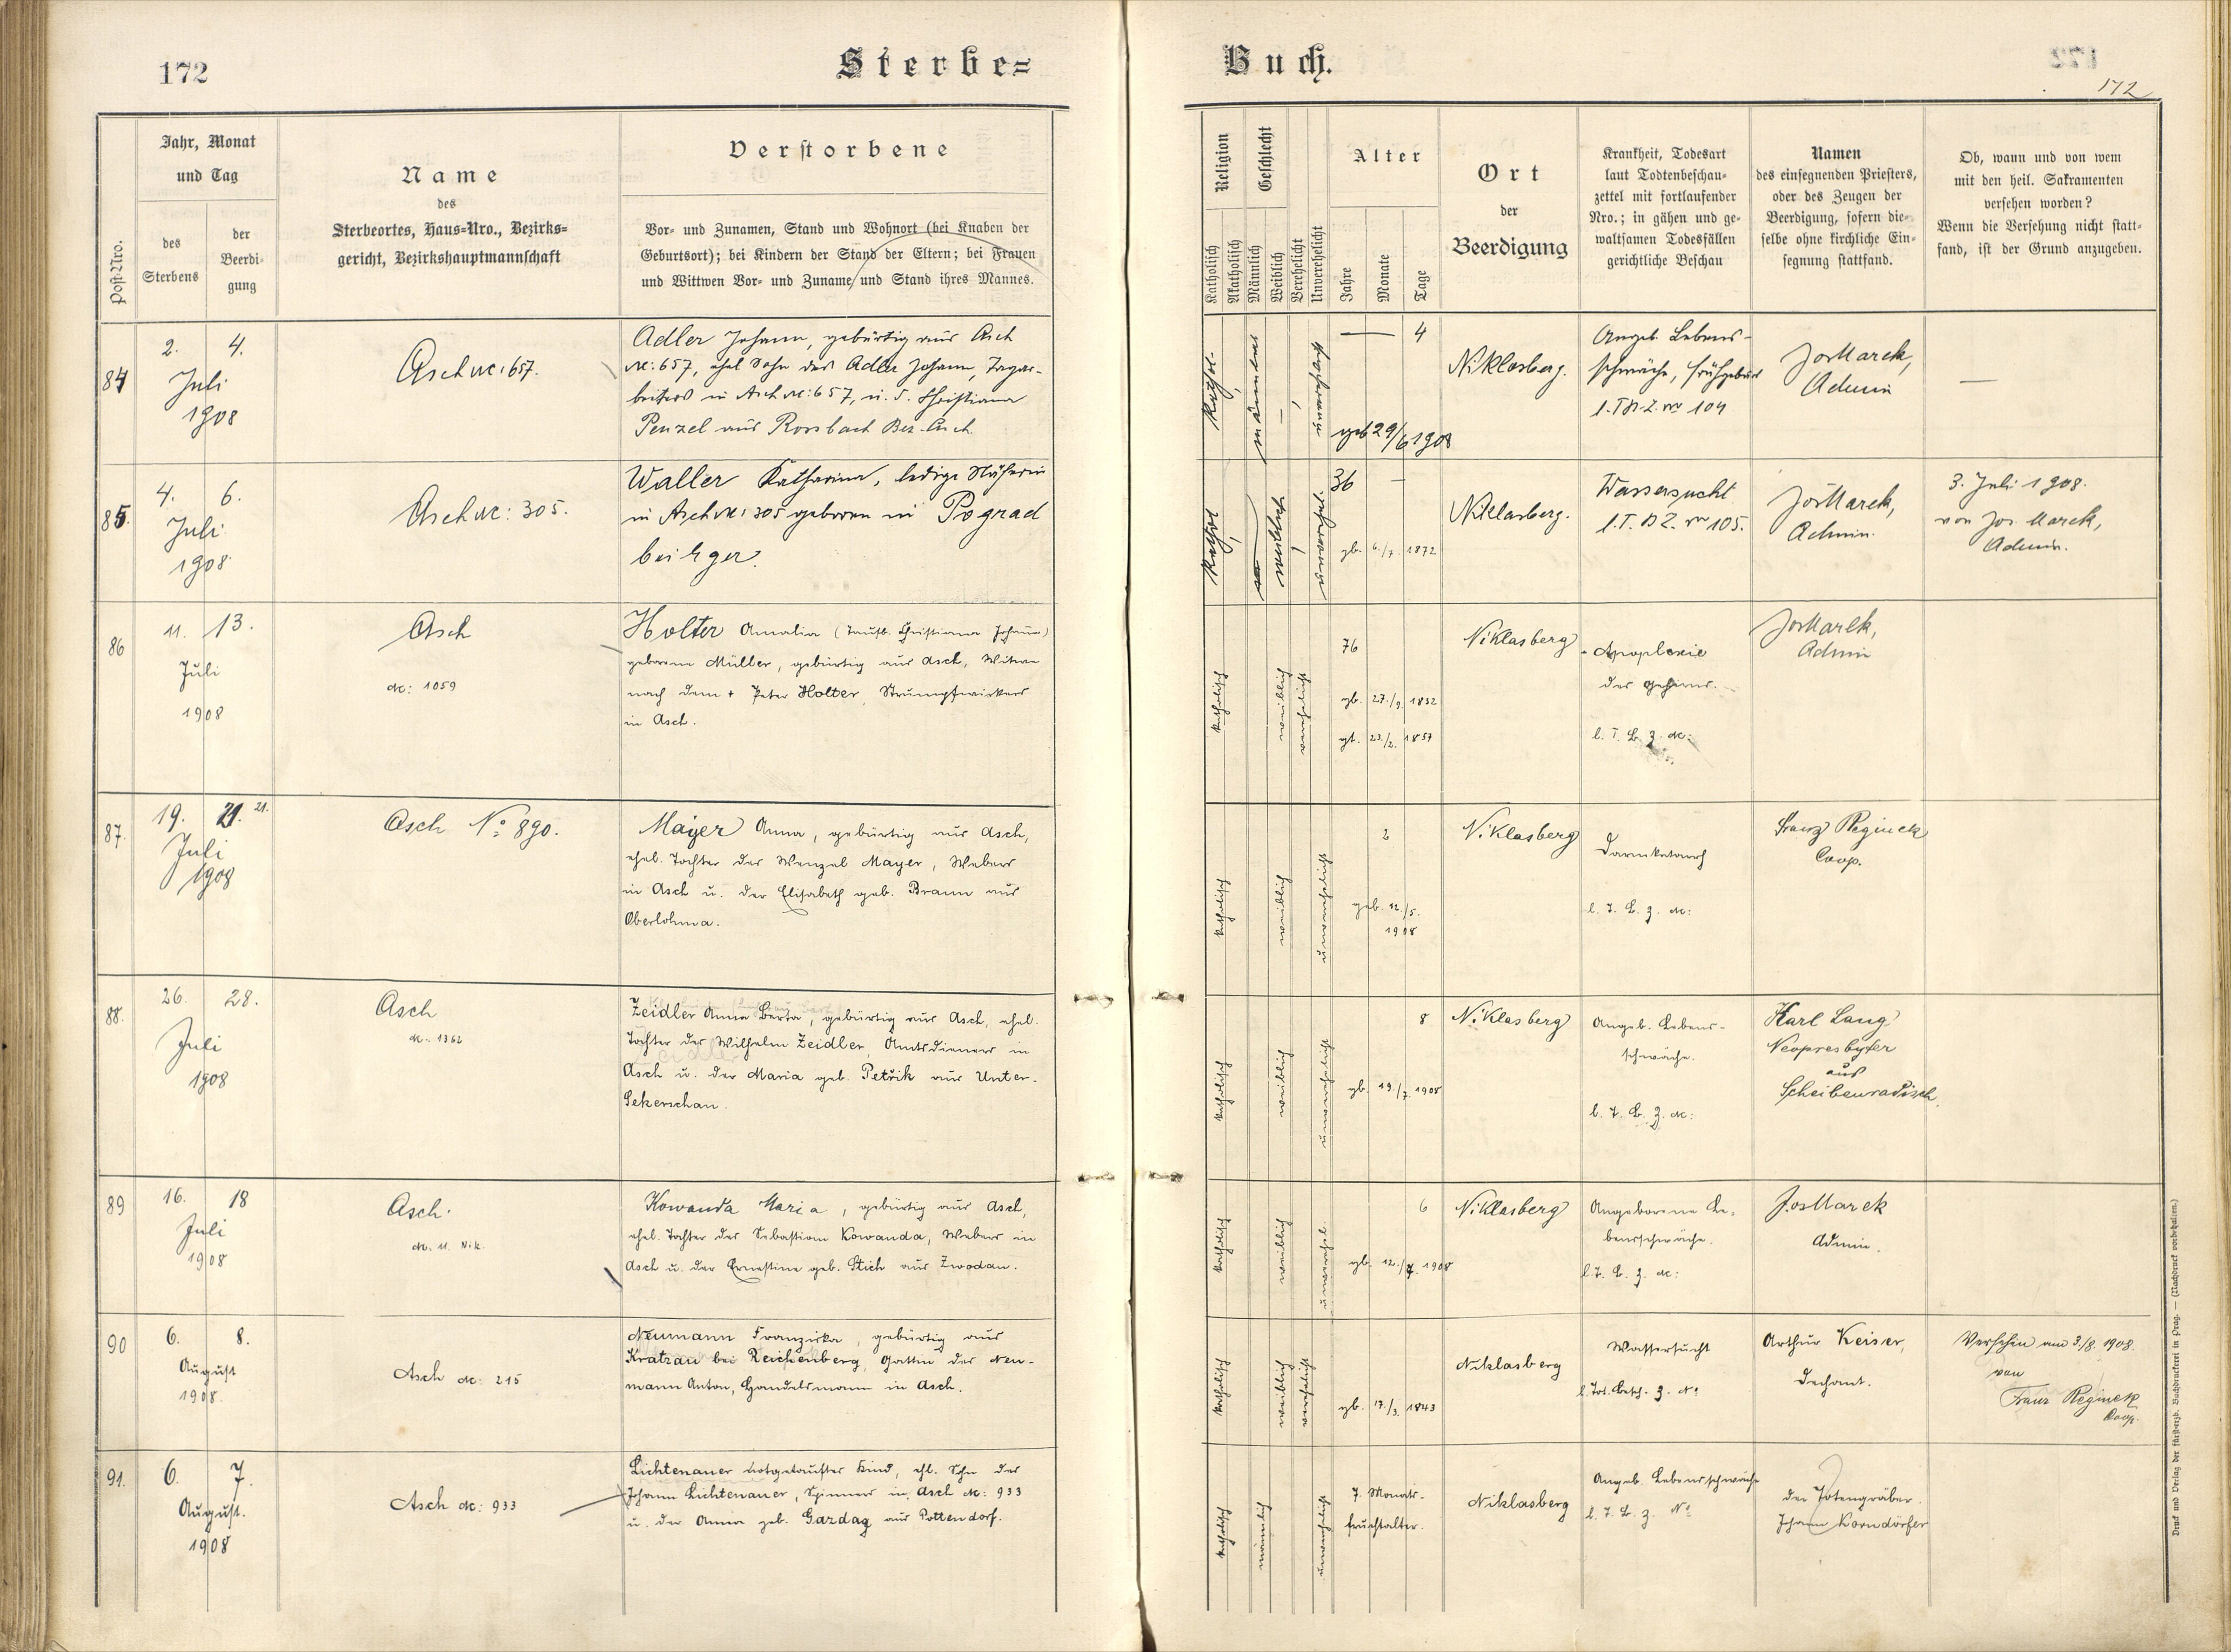 172
Sterbe=
Post-Nro.
Jahr, Monat
und Tag
des
Sterbens
der
Beerdi-
gung
Name
des
Sterbeortes, Haus-Nro., Bezirks-
gericht, Bezirkshauptmannschaft
Verstorbene
Vor- und Zunamen, Stand und Wohnort (bei Knaben der
Geburtsort); bei Kindern der Stand der Eltern; bei Frauen
und Wittwen Vor- und Zuname und Stand ihres Mannes.
84
2. 4.
Juli
1908
Asch № 657.
Adler Johann, gebürtig aus Asch
№ 657, ehel Sohn des Adler Johann, Tagar-
beiters in Asch № 657, u. d. Christiana
Penzel aus Rossbach Bez. Asch.
85.
4. 6.
Juli
1908
Asch № 305.
Waller Katharina, ledige Näherin
in Asch № 305 geboren in Pograd
bei Eger.
86
11. 13.
Juli
1908
Asch
№ 1059
Holter Amalia (Taufb. Christiana Johana)
geborene Müller, gebürtig aus Asch, Witwe
nach dem + Peter Holter, Strumpfwirkers
in Asch.
87.
19. 21. 21.
Juli
1908
Asch No 890.
Mayer Anna, gebürtig aus Asch,
ehel. Tochter des Wenzel Mayer, Webers
in Asch u. der Elisabeth geb. Braun aus
Oberlohma.
88.
26. 28.
Juli
1908
Asch
№ 1362
Zeidler Anna Berta, gebürtig aus Asch, ehel.
Tochter des Wilhelm Zeidler, Amtsdieners in
Asch u. der Maria geb. Petřik aus Unter-
Sekerschan.
89
16. 18
Juli
1908
Asch.
№ 11. Nik.
Kowanda Maria, gebürtig aus Asch,
ehel. Tochter des Sebastian Kowanda, Webers in
Asch u. der Ernestine geb. Stich aus Zwodau.
90
6. 8.
August
1908.
Asch № 215
Neumann Franziska, gebürtig aus
Kratzau bei Reichenberg, Gattin des Neu-
mann Anton, Handelsmann in Asch.
91.
6. 7.
August.
1908
Asch № 933
Lichtenauer notgetauftes Kind, ehl. Sohn des
Johann Lichtenauer, Spinners in Asch № 933
u. der Anna geb. Gardag aus Pottendorf.
Buch.
172
Religion
Katholisch
Akatholisch
Geschlecht
Männlich
Weiblich
Verehelicht
Unverehelicht
Alter
Jahre
Monate
Tage
Ort
der
Beerdigung
Krankheit, Todesart
laut Todtenbeschau-
zettel mit fortlaufender
Nro.; in gähen und ge-
waltsamen Todesfällen
gerichtliche Beschau
Namen
des einsegnenden Priesters,
oder des Zeugen der
Beerdigung, sofern die-
selbe ohne kirchliche Ein-
segnung stattfand.
Ob, wann und von wem
mit den heil. Sakramenten
versehen worden?
Wenn die Versehung nicht statt-
fand, ist der Grund anzugeben.
— 4
geb 29/6 1908
Niklasberg.
Angeb. Lebens-
schwäche, Frühgeburt
l. T. B. Z. № 104
Jos Marek,
Admin
—
36 —
gb. 6./7. 1872
Niklasberg.
Wassersucht
l. T. B Z. № 105.
Jos Marek,
Admin.
3. Juli 1908.
von Jos. Marek,
Admin.
katholisch
weiblich
verehelicht
76
gb. 27./9. 1832
gt. 23./2. 1857
Niklasberg
Apoplexie
des Gehirns.
l. T. B. z. №:
Jos Marek,
Admin
katholisch
weiblich
unverehelicht
2
geb. 12./5.
1908
Niklasberg
Darmkatarrh
l. T. B. z. №:
Franz Reginek
Coop.
katholisch
weiblich
unverehelicht
8
gb. 19./7. 1908
Niklasberg
Angeb. Lebens-
schwäche.
l. T. B. z. №:
Karl Lang
Neopresbyter
aus
Scheibenradisch.
katholisch
weiblich
unverehel.
6
gb. 12./7. 1908
Niklasberg
Angeborene Le-
bensschwäche.
l. T. B. z. №:
Jos Marek
Admin.
katholisch
weiblich
verehelicht
gb. 17./3. 1843
Niklasberg
Wassersucht
l. Tot. Besch. z. No
Arthur Keiser,
Dechant.
Versehen am 3./8. 1908.
von
Franz Reginek
Coop.
katholisch
männlich
unverehelicht
7. Monats-
fruchtalter.
Niklasberg
Angeb. Lebensschwäche
l. T. B. z. No
der Totengräber.
Johann Korndörfer
Druck und Verlag der fürsterzb. Buchdruckerei in Prag. — (Nachdruck vorbehalten.)